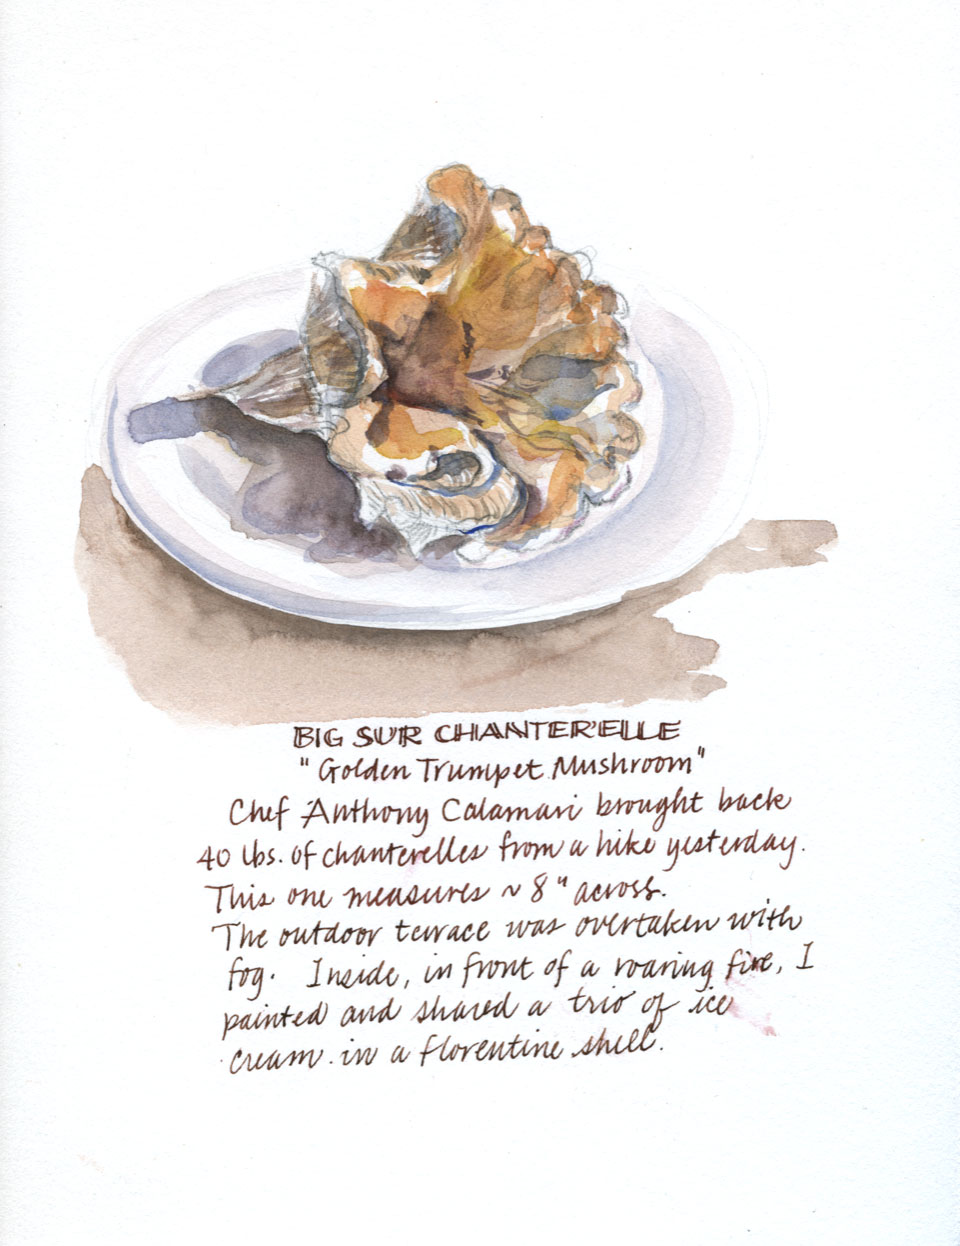 BIG SUR CHANTERELLE
"Golden Trumpet Mushroom"
Chef Anthony Calamari brought back
40 lbs. of chanterelles from a hike yesterday.
This one measures ~ 8" across.
The outdoor terrace was overtaken with
fog. Inside, in front of a roaring fire, I
painted and shared a trio of ice
cream in a florentine shell.